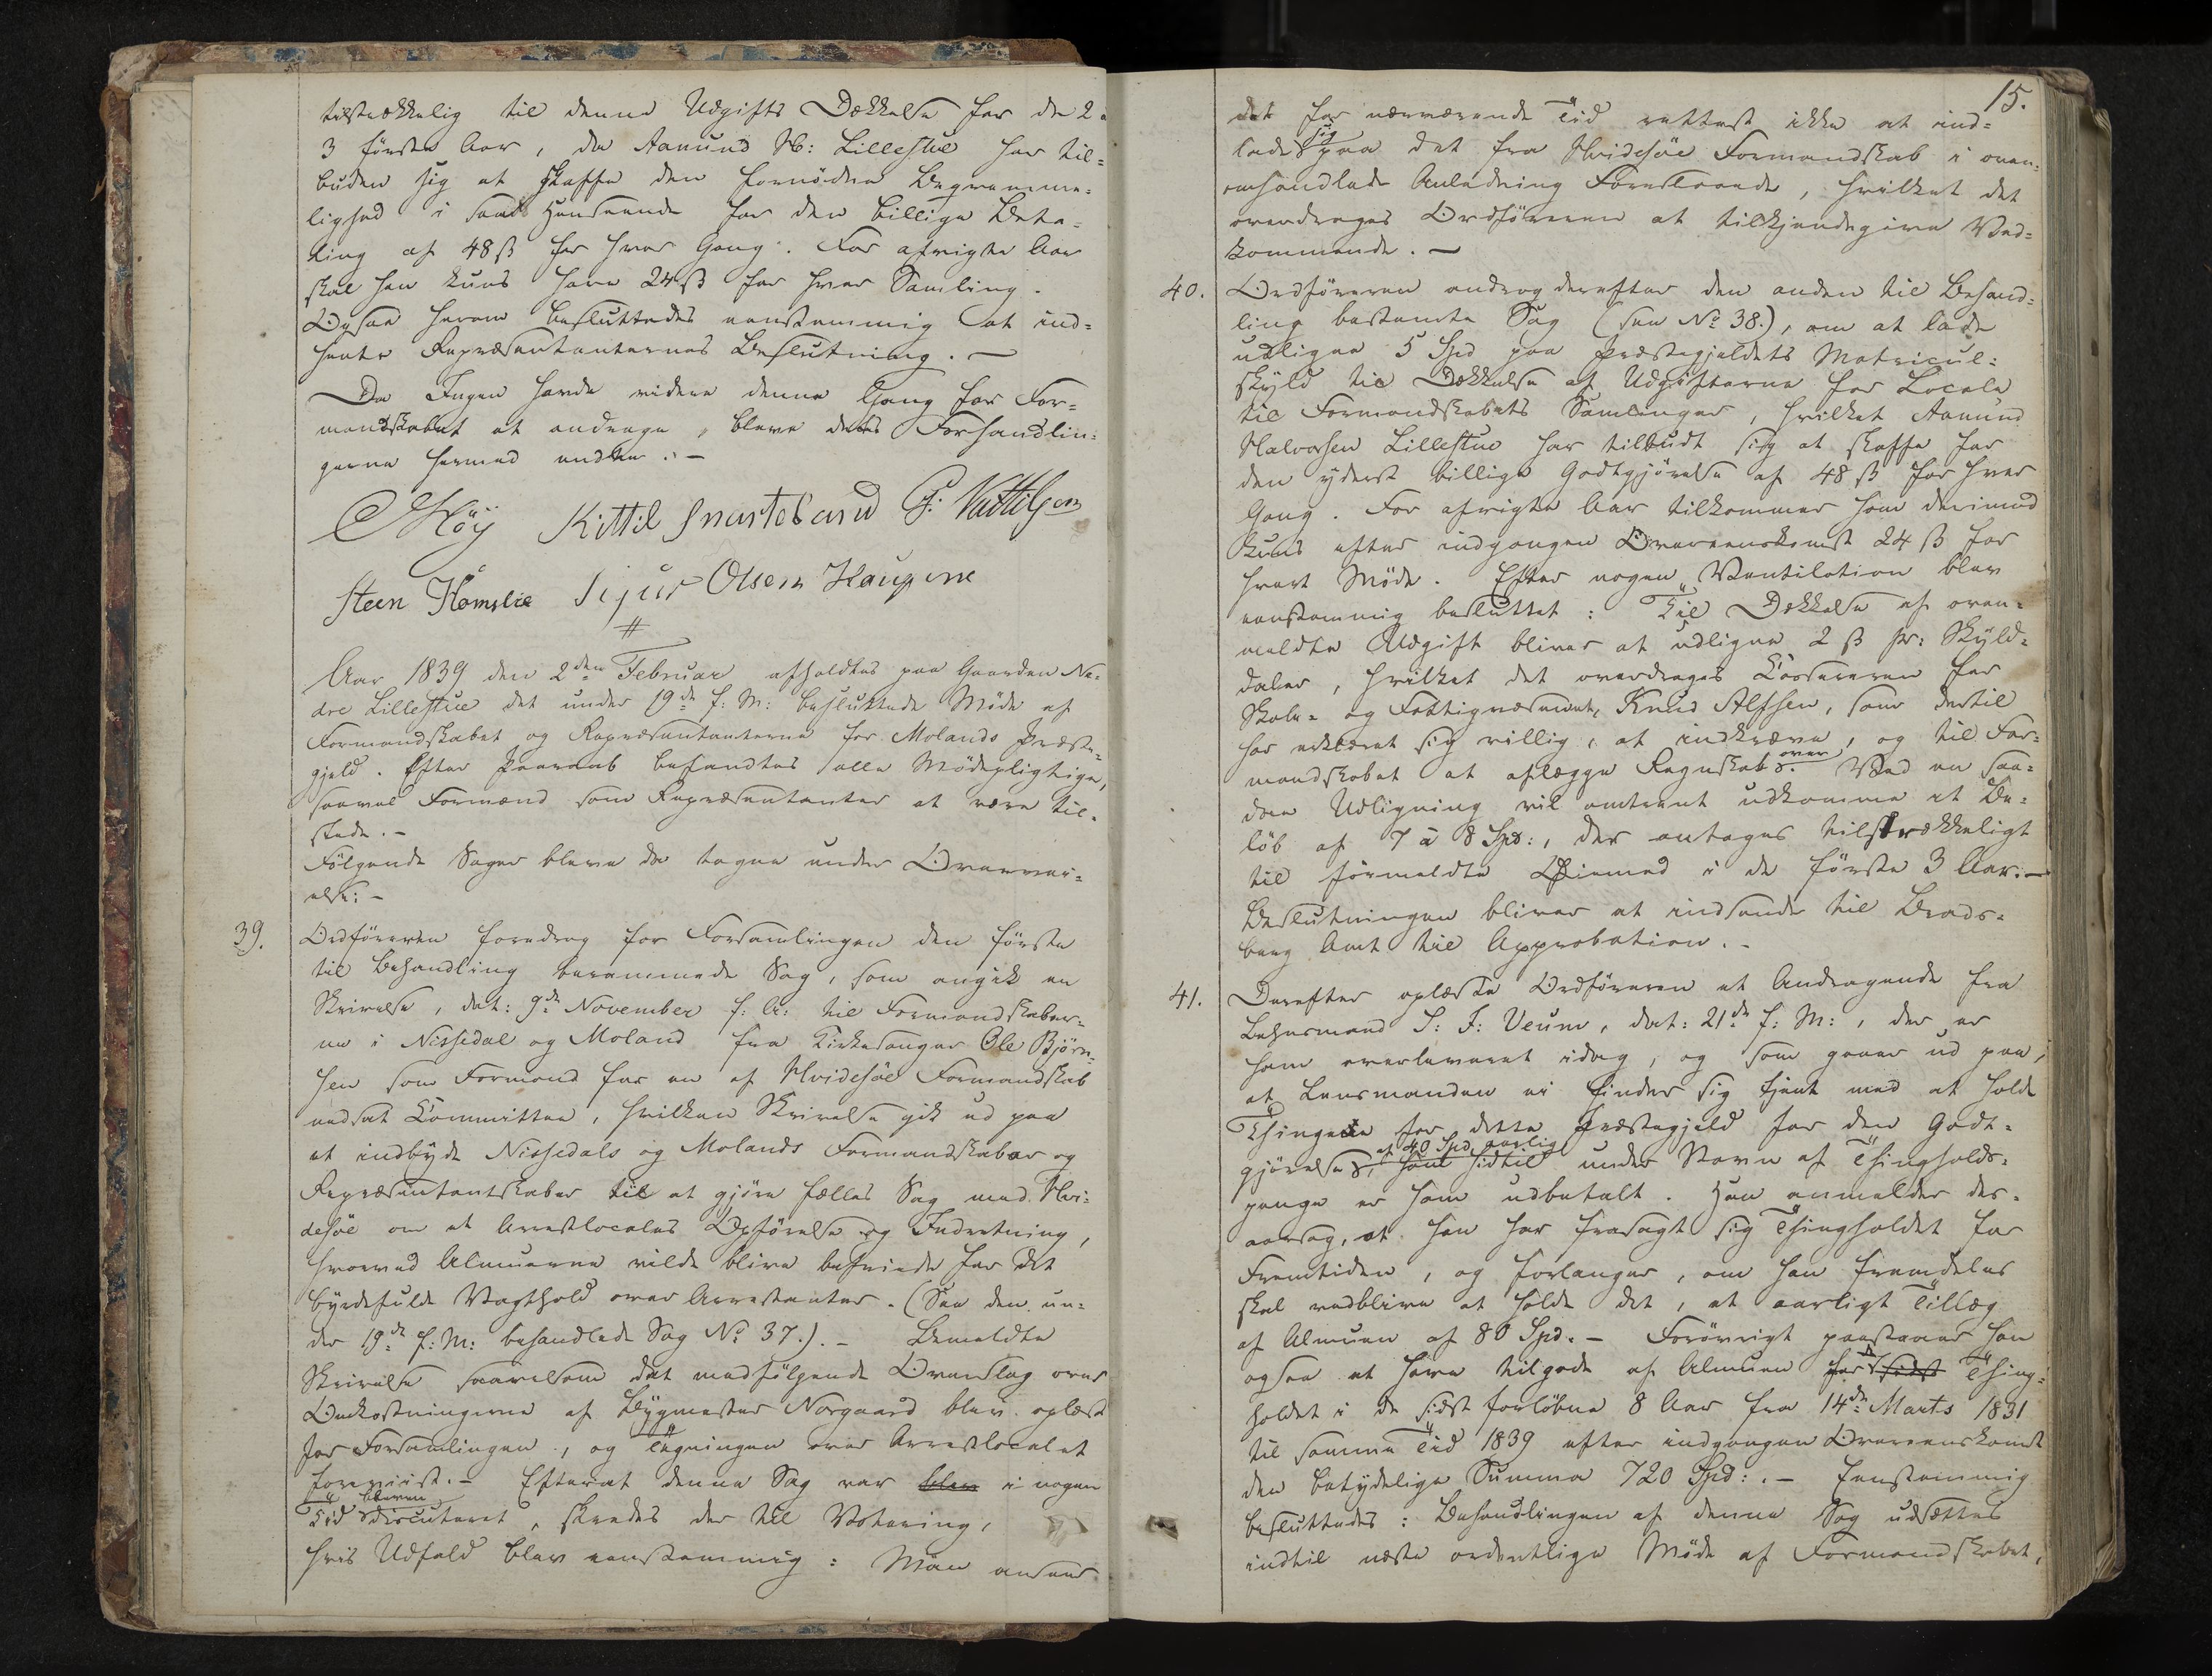 tilstrækkelig til denne Udgifts Dækkelse for de 2 a
3 første Aar, da Aanund H: Lillestue har til=
buden sig at skaffe den fornødne Beqvemme=
lighed i saads Henseende for den billige Beta=
ling af 48 ß for hver Gang. For afvigte Aar
skal han kuns have 24 ß for hver Samling.
Ogsaa herom besluttedes eenstemmig at ind=
hente Repræsentanternes Beslutning. —
Da Ingen havde videre denne Gang for For=
mandskabet at andrage, bleve dets Forhandlin=
gerne hermed endte. —
C Høÿ Kittil Snarteland G: Kittilsen
Steen Hømslie Sigur Olsen Haugene
#
Aar 1839 den 2den Februar afholdtes paa Gaarden Ne=
dre Lillestue det under 19de f: M: besluttede Møde af
Formandskabet og Repræsentanterne for Molands Præste=
gjeld. Efter Paaraab befandtes alle Mødepligtige,
saavel Formænd som Repræsentanter at være til=
stede. –
Følgende Sager bleve da tagne under Overvei=
else: –
39. Ordføreren foredrog for Forsamlingen den første
til Behandling berammede Sag, som angik en
Skrivelse, dat: 9de November f: A: til Formandskaber=
ne i Nissedal og Moland fra Kirkesanger Ole Bjørn=
sen som Formand for en af Hvidesöe Formandskab
nedsat Committee, hvilken Skrivelse gik ud paa
at indbyde Nissedals og Molands Formandskaber og
Repræsentantskaber til at gjøre fælles Sag med Hvi=
desöe om et Arrestlocales Opførelse og Indretning,
hvorved Almuerne vilde blive befriede for det
byrdefulde Vagthold over Arrestanter. (See den un=
der 19de f: M: behandlede Sag No 37.). – Bemeldte
Skrivelse saavelsom det medfølgende Overslag over
Omkostningerne af Bygmester Norgaard blev oplæst
for Forsamlingen, og Tegningen over Arrestlocalet
foreviist. – Efterat denne Sag var blev i nogen
Tid bleven discuteret, skredes der til Votering,
hvis Udfald blev eenstemmig: Man ansaae
15.
det for nærværende Tid rettest ikke at ind=
lade sig paa det fra Hvidesöe Formandskab i oven=
omhandlede Anledning Foreslaaede, hvilket det
overdrages Ordføreren at tilkjendegive Ved=
kommende. —
40. Ordføreren androg derefter den anden til Behand=
ling bestemte Sag (see No 38.), om at lade
udligne 5 Spd paa Præstegjeldets Matricul=
skyld til Dækkelse af Udgifterne for Locale
til Formandskabets Samlinger, hvilket Aanund
Halvorsen Lillestue har tilbudt sig at skaffe for
den yderst billige Godtgjørelse af 48 ß for hver
Gang. For afvigte Aar tilkommer ham derimod
kuns efter indgangen Overeenskomst 24 ß for
hvert Møde. Efter nogen Ventilation blev
eenstemmig besluttet: Til Dækkelse af oven=
meldte Udgift bliver at udligne 2 ß pr: Skyld=
daler, hvilket det overdrages Casereren for
Skole= og Fattigvæsenet, Knud Alfsen, som dertil
har erklæret sig villig, at indkræve, og til For=
mandskabet at aflægge Regnskab over. Ved en saa=
dan Udligning vil omtrent udkomme et Be=
løb af 7 à 8 Spd:, der antages tilstrækkeligt
til formeldte Øiemed i de første 3 Aar. —
Beslutningen bliver at indsende til Brads=
berg Amt til Approbation. –
41. Derefter oplæste Ordføreren et Andragende fra
Lehnsmand S: J: Veum, dat: 21de f: M:, der er
ham overleveret idag, og som gaaer ud paa,
at Lensmanden ei finder sig tjent med at holde
Thingene for dette Præstegjeld for den Godt=
gjørelse, af 40 Spd aarlig som hidtil under Navn af Thingholds=
penge er ham udbetalt. Han anmelder des=
aarsag, at han har frasagt sig Thingholdet for
Fremtiden, og forlanger, om han fremdeles
skal vedblive at holde det, et aarligt Tillæg
af Almuen af 80 Spd. – Forøvrigt paastaaer han
ogsaa at have tilgode af Almuen for sidst Thing=
holdet i de sidst forløbne 8 Aar fra 14de Marts 1831
til samme Tid 1839 efter indgangen Overeenskomst
den betydelige Summa 720 Spd:. – Eenstemmig
besluttedes: Behandlingen af denne Sag udsættes
indtil næste ordentlige Møde af Formandskabet,